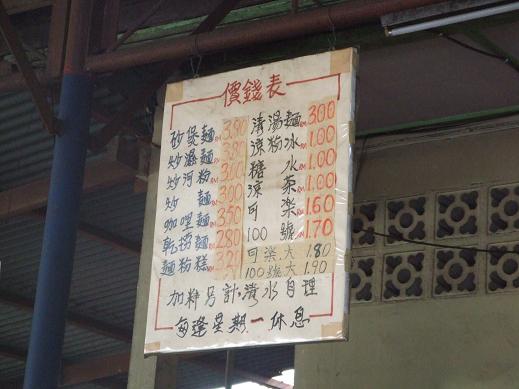 價錢表
砂煲麵 RM 3.80 清湯麵 RM 3.00
炒濕麵 RM 3.80 涼粉冰 RM 1.00
炒河粉 RM 3.00 糖水 RM 1.00
炒麵 RM 3.00 涼茶 RM 1.00
咖哩麵 RM 3.50 可樂 RM 1.60
乾撈麵 RM 2.80 100號 RM 1.70
麵粉糕 可樂大 1.80
100號大 1.90
加料另計,清水自理
每逢星期一休息